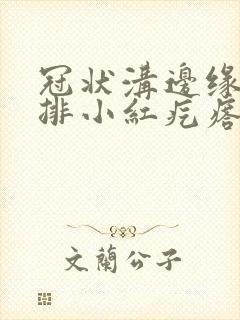 冠状溝邊缘
排小紅疙瘩
文蘭公子